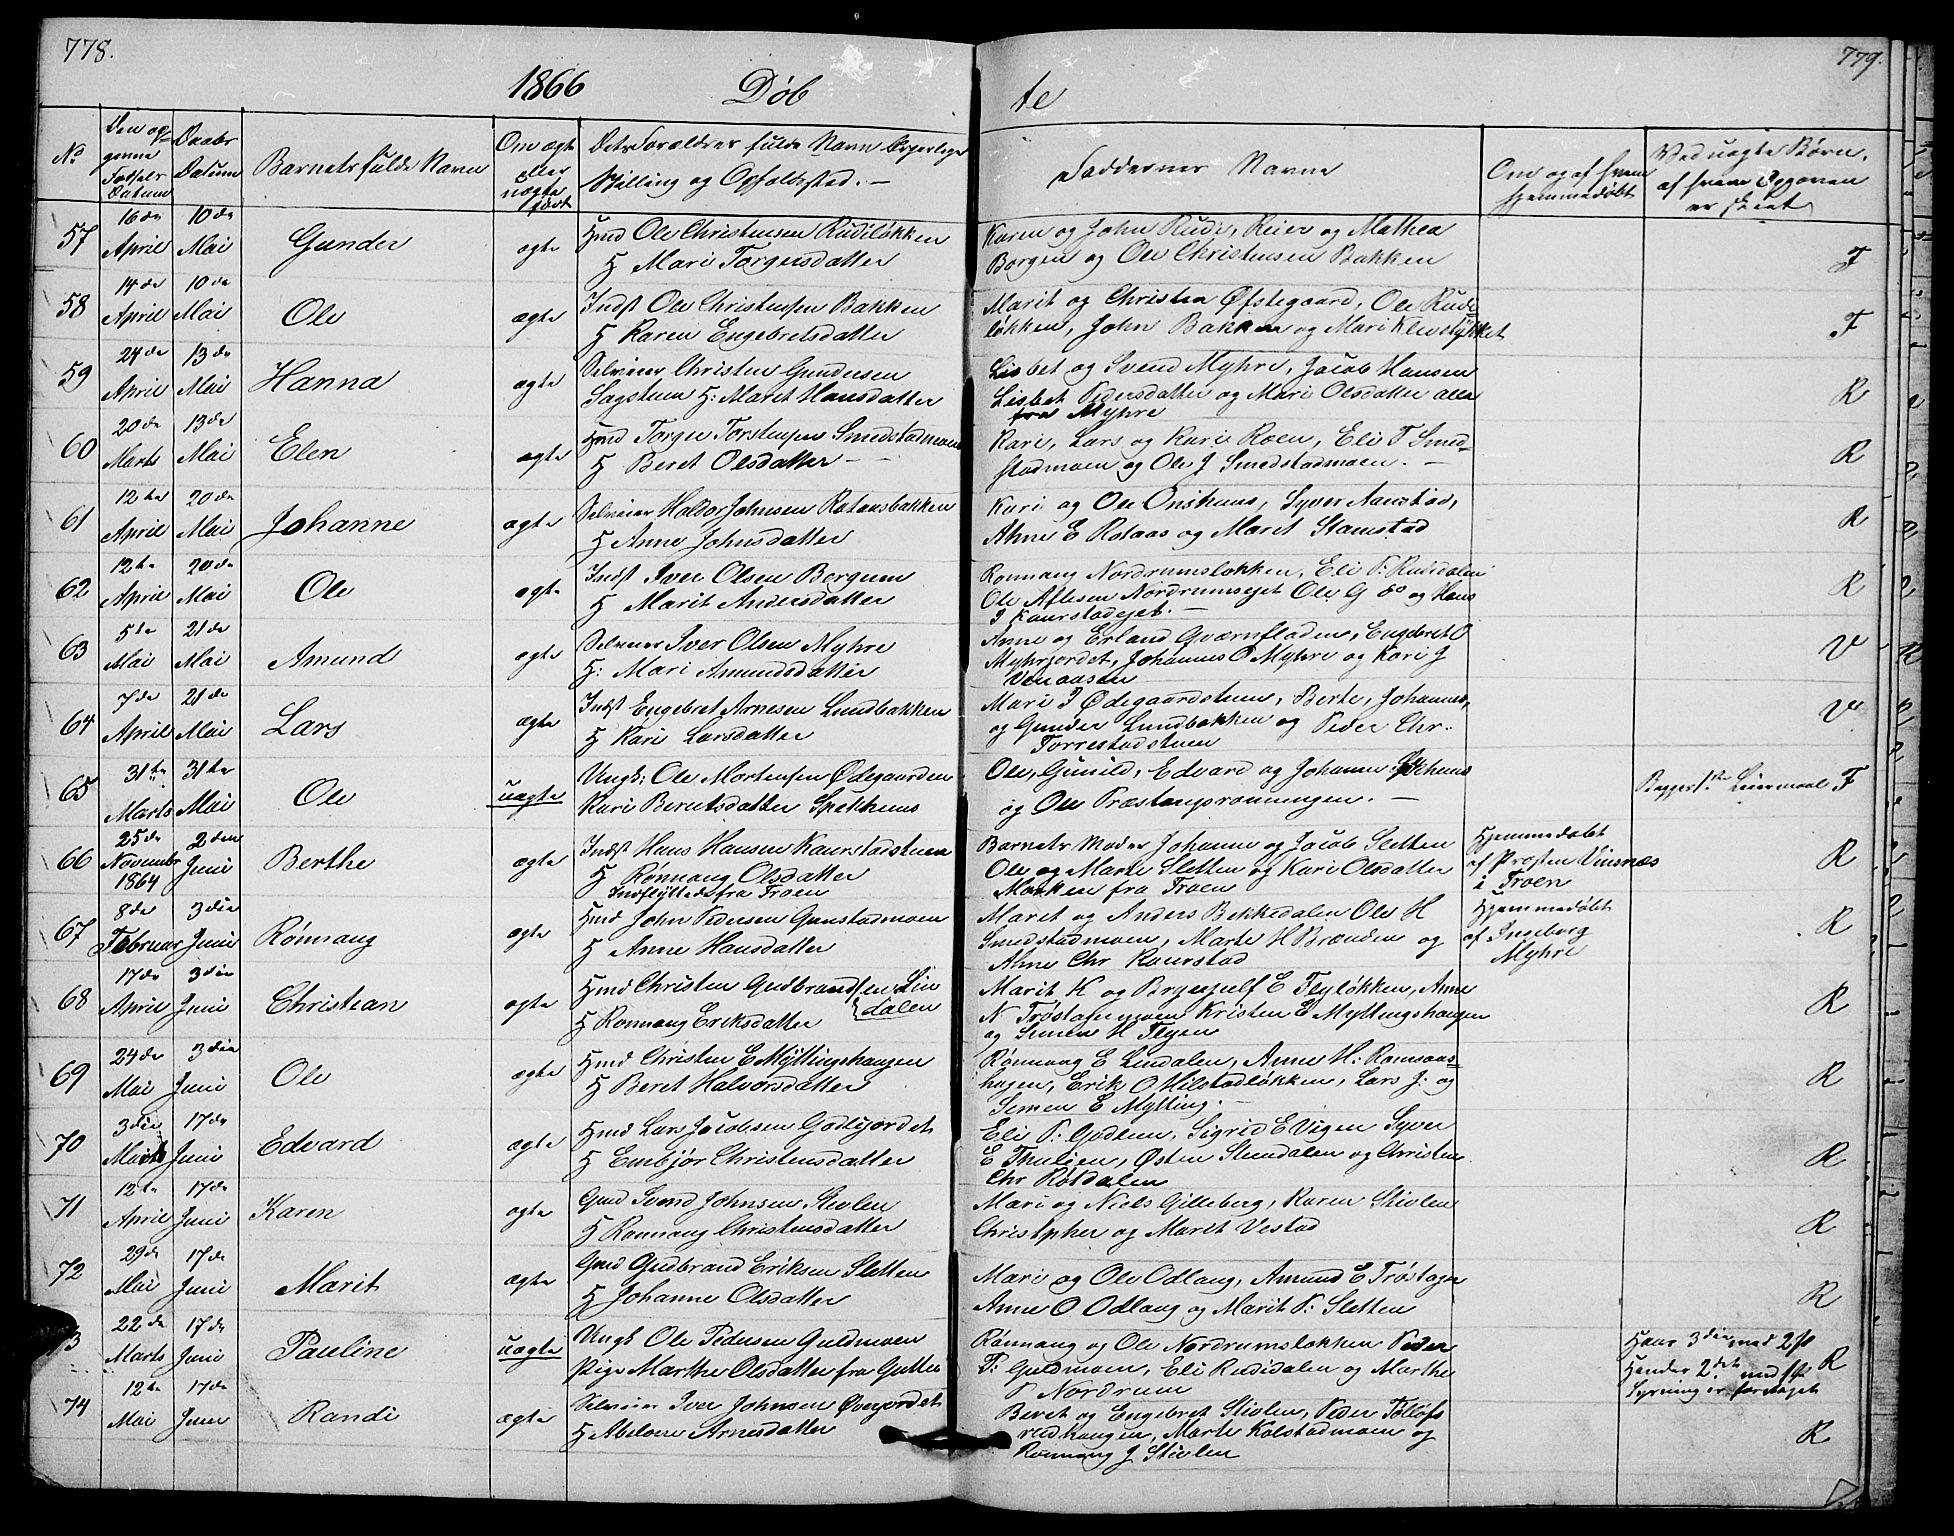 778.
779.
1866 Døb
te
No
Den og
Daabs
Datum
Barnets fulde Navn
Om ægte
eller
uægte
født
Stilling og Opholdssted. —
Faddernes Navne
Om og af hvem
hjemmedøbt
Ved uægte Børn,
af hvem
57 16de April 10de Mai Gunder ægte Hmd Ole Christensen Rudiløkken
H Mari Torgersdatter
Karen og John Rudi, Reier og Mathea
Borgen og Ole Christensen Bakken F
58 14de April 10de Mai Ole ægte Indst Ole Christensen Bakken
H Karen Engebretsdatter
Marit og Christen Øfstegaard, Ole Rudi
løkken, John Bakken og Mari Klevstykket F
59 24de April 13de Mai Hanna ægte Selveier Christen Gundersen
Sagstuen H: Marit Hansdatter
Lisbet og Svend Myhre, Jacob Hansen
Lisbet Pedersdatter og Mari Olsdatter alle
fra Myhre R
60 20de Marts 13de Mai Elen ægte Hmd Torger Torstensen Smedstadmoen
H Beret Olsdatter —
Kari, Lars og Kari Roen, Eli T Smed-
stadmoen og Ole J Smedstadmoen. — R
61 12te April 20de Mai Johanne ægte Selveier Haldor Johnsen Rotaasbakken
H Anne Johnsdatter
Kari og Ole Onshuus, Syver Aanstad,
Anne E Rotaas og Marit Stamstad R
62 12te April 20de Mai Ole ægte Indst Iver Olsen Bergum
H Marit Andersdatter
Rønnaug Nordrumsløkken, Eli P. Rudidalen
Ole Aflesen Nordrumsejet Ole G do og Hans
J Kaurstadejet. — R
63 5te Mai 21de Mai Amund ægte Selveier Iver Olsen Myhre
H: Mari Amundsdatter
Anne og Erland Qværnfloden, Engebret O
Myhrjordet, Johannes O Myhre og Kari J
V
64 7de April 21de Mai Lars ægte Indst Engebret Arnesen Lundbakken
H Kari Larsdatter
Mari J Ødegaardstuen, Berte, Johannes,
og Gunder Lundbakken og Peder Chr.
Torrestadstuen V
65 31te Marts 31te Mai Ole uægte Ungk: Ole Mortensen Ødegaarden
Kari Berntsdatter Spekhuus
Ole, Gunild, Edvard og Johanne Spekhuus
og Ole Præstengrønningen. —
Begges 1ste Leiermaal F
66 25de Novembr 1864 2den Juni Berthe ægte Indst Hans Hansen Kaurstadstuen
H Rønnaug Olsdatter
Indflyttede fra Froen
Barnets Moder Johanne og Jacob Sletten
Ole og Marte Sletten og Kari Olsdatter
Morken fra Froen
Hjemmedøbt
af Prosten Vinsnæs
i Froen R
67 8de Februar 3die Juni Rønnaug ægte Hmd John Pedersen Gunstadmoen
H Anne Hansdatter
Marit og Anders Bekkedalen Ole H
Smedstadmoen, Marte H Brænden og
Anne Chr Kaurstad
Hjemmedøbt
af Ingeborg
Myhre R
68 17de April 3die Juni Christian ægte Hmd Christen Gudbrandsen Lin
dalen
H Rønnaug Eriksdatter
Marit H og Brynjulf E Flyløkken, Anne
N Trøstagermoen Kristen E Myttingshaugen
og Simen H Flyen R
69 24de Mai 3die Juni Ole ægte Hmd Christen E Myttingshaugen
H Beret Halvorsdatter
Rønnaug E Lindalen, Anne H: Romsaas-
hagen, Erik O Milstadløkken, Lars J: og
Simen E Mytting. — R
70 3die Marts 17de Juni Edvard ægte Hmd Lars Jacobsen Godlijordet
H Embjør Christensdatter
Eli P: Godlien, Sigrid E Vigen Syver
E Thulien, Østen Stendalen og Christen
Chr Røtdalen R
71 12te April 17de Juni Karen ægte Gmd Svend Johnsen Stivlen
H Rønnaug Christensdatter
Mari og Niels Gilleberg, Karen Stivlen
Christpher og Marit Vestad R
72 29de Mai 17de Juni Marit ægte Gmd Gudbrand Eriksen Sletten
H Johanne Olsdatter
Mari og Ole Odlaug, Amund E Trøstager
Anne O Odlaug og Marit P: Sletten R
3 22de Marts 17de Juni Pauline uægte Ungk Ole Pedersen Guldmoen
Pige Marthe Olsdatter fra Gutten
Rønnaug og Ole Nordrumsløkken Peder
P: Guldmoen, Eli Rudidalen og Marthe
P Nordrum
Hans 3die med 2.
Hendes 2det
R
74 12te Mai 17de Juni Randi ægte Selveier Iver Johnsen Øverjordet
H Abelone Arnesdatter
Beret og Engebret Stivlen, Peder Tollofs
rudhaugen, Marte Kolstadmoen og
Rønnaug J Stivlen R